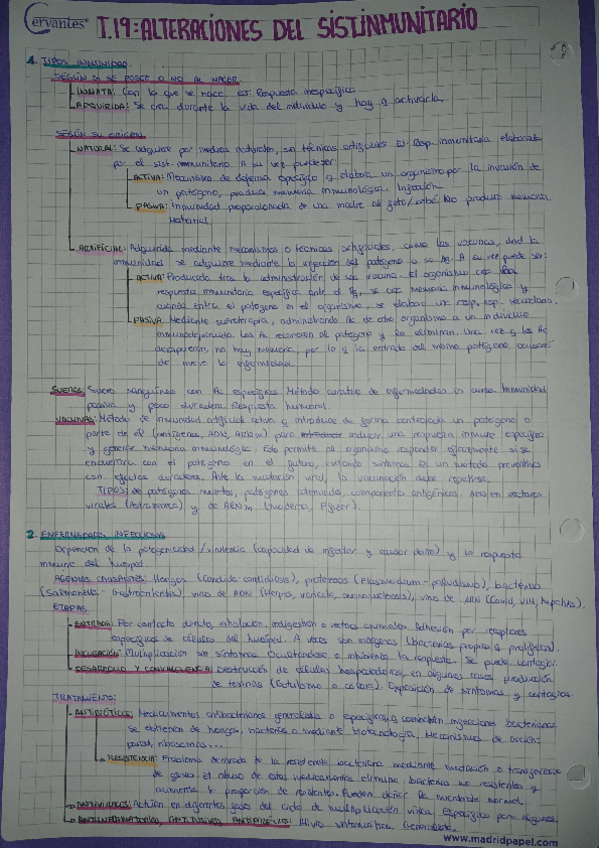 Cervantes® T.19: ALTERACIONES DEL SIST. INMUNITARIO
1. TIPOS INMUNIDAD
SEGÚN SI SE POSEE O NO AL NACER
INNATA: Con la que se nace. Es: Respuesta inespecífica.
ADQUIRIDA: Se crea durante la vida del individuo y hay q activarla.
SEGÚN SU ORIGEN
NATURAL: Se adquiere por medios naturales, sin técnicas artificiales. Es: Resp. inmunitaria elaborada
por el sist. inmunitario. A su vez puede ser:
ACTIVA: Mecanismo de defensa específico q elabora un organismo por la invasión de
un patógeno, produce memoria inmunológica.
PASIVA: Inmunidad proporcionada de una madre al feto/bebé. No produce memoria.
Material.
ARTIFICIAL: Adquirida mediante mecanismos o técnicas artificiales, como las vacunas, dnd la
inmunidad se adquiere mediante la inyección del patógeno o su Ag. A su vez puede ser:
ACTIVA: Producida tras la administración de una vacuna. El organismo crea una
respuesta inmunitaria específica ante el Ag, se crea memoria inmunológica y
cuando entra el patógeno en el organismo, se elabora una resp. secundaria.
PASIVA: Mediante sueroterapia, administrando Ac de otro organismo a un individuo
inmunodeprimido. Los Ac reconocen al patógeno y lo eliminan. Una vez q los Ac
desaparecen, no hay memoria, por lo q la entrada del mismo patógeno
de nuevo la enfermedad.
SUEROS: Suero sanguíneo con Ac específicos. Método curativo de enfermedades en curso. Inmunidad
pasiva y poco duradera. Respuesta humoral.
VACUNAS: Método de inmunidad artificial activa q introduce de forma controlada un patógeno o
parte de él (antígenos, ADN, ARNm) para inducir una respuesta inmune específica
y generar memoria inmunológica. Esto permite al organismo responder eficazmente si se
encuentra con el patógeno en el futuro, evitando síntomas. Es un método preventivo
con efectos duraderos. Ante la mutación viral, la vacunación debe repetirse.
TIPOS: de patógenos muertos, patógenos atenuados, componentes antigénicos, vectores
virales (Astrazeneca) y de ARNm (Moderna, Pfizer).
2. ENFERMEDADES INFECCIOSAS
Dependen de la patogenicidad/virulencia (capacidad de infectar y causar daño) y la respuesta
inmune del huésped.
AGENTES CAUSANTES: Hongos (Candida - candidiasis), protozoos (Plasmodium - paludismo), bacterias
(Salmonella - Gastroenteritis), virus de ADN (Herpes, varicela, mononucleosis), virus de ARN (Covid, VIH, hepatitis).
ETAPAS
ENTRADA: Por contacto directo, inhalación, indigestión o vectores animales. Adhesión por receptores
específicos de células del huésped. A veces son endógenos (bacterias propias q proliferan).
INCUBACIÓN: Multiplicación sin síntomas. Ocultándose o inhibiendo la respuesta. Se puede contagiar.
DESARROLLO Y CONVALECENCIA: Destrucción de células hospedadoras, en algunos casos producción
de toxinas (Botulismo o cólera). Exposición de síntomas y contagios.
TRATAMIENTO:
ANTIBIÓTICOS: Medicamentos antibacterianos generales o específicos q combaten infecciones bacterianas.
Se obtienen de hongos, bacterias o mediante biotecnología. Mecanismos de acción:
pared, ribosomas...
RESISTENCIA: Problema derivado de la resistencia bacteriana mediante mutación o transferencia
de genes. El abuso de estos medicamentos elimina bacterias no resistentes y
aumenta la proporción de resistentes. Pueden dañar la microbiota normal.
ANTIVIRALES: Actúan en algunas fases del ciclo de multiplicación vírica. Específico para algunos.
ANTIINFLAMATORIOS, ANTITUSIVOS, ANTIPIRÉTICOS: Alivio sintomático.
www.madridpapel.com